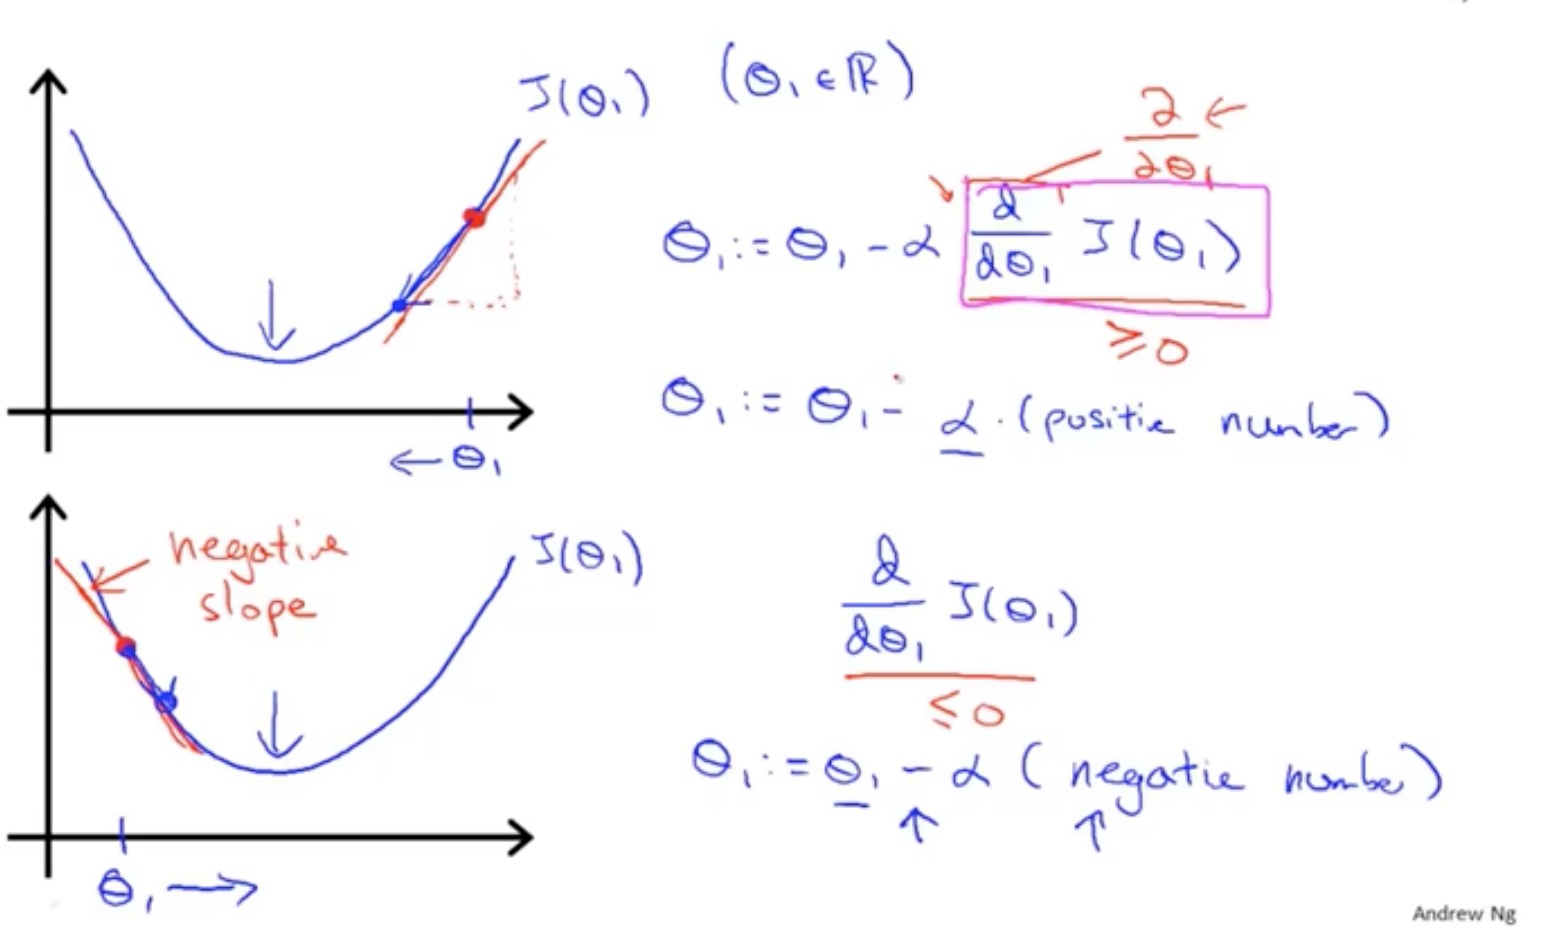 J(θ₁) (θ₁ ∈ ℝ)
∂ ←
∂θ₁
θ₁ := θ₁ - α d/dθ₁ J(θ₁)
≥ 0
θ₁ := θ₁ - α · (positie number)
← θ₁
negative
slope
J(θ₁)
d/dθ₁ J(θ₁)
≤ 0
θ₁ := θ₁ - α (negatie number)
↑ ↑
θ₁ →
Andrew Ng